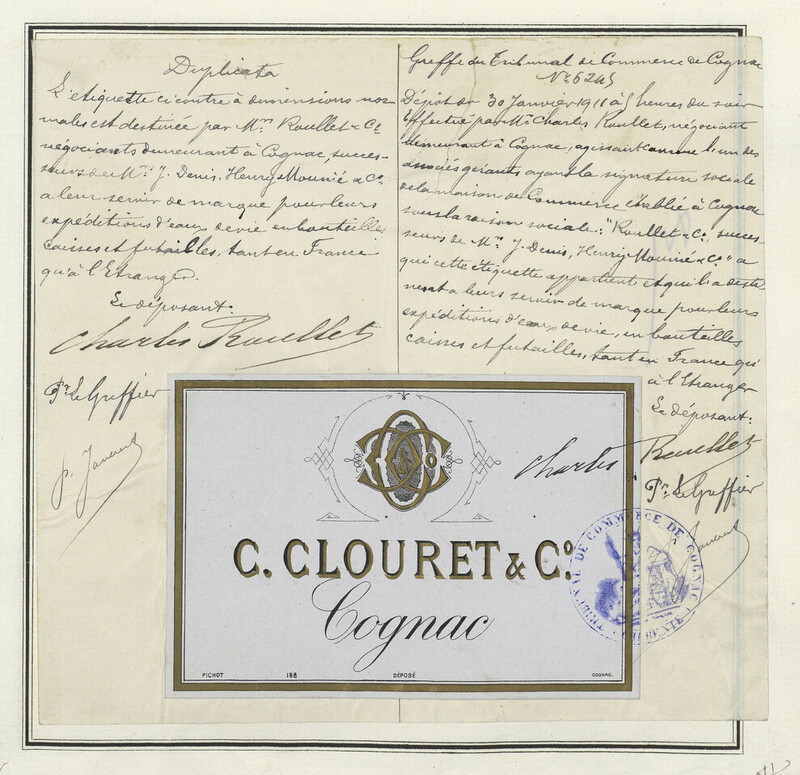 Duplicata
L'etiquette ci contre à dimensions nor-
males est destinée par Mrs Roullet & Co
négociants demeurant à Cognac, succes-
seurs de Mrs J. Denis, Henry Mounié & Co
a leur servir de marque pour leurs
expéditions d'eaux de vie en bouteilles
caisses et futailles, tant en France
qu'à l'Etranger.
Le déposant:
Charles Roullet
Pr le Greffier
Greffe du Tribunal de Commerce de Cognac
No 6245
Dépot du 30 Janvier 1911 à 5 heures du soir
Effectué par Mr Charles Roullet, négociant
demeurant à Cognac, agissant comme l'un des
associés gérants ayant la signature sociale
de la maison de Commerce établie à Cognac
sous la raison sociale: "Roullet & Co, succes-
seurs de Mrs J. Denis, Henry Mounié & Co" a
qui cette étiquette appartient et qui l'a desti-
nent a leurs servir de marque pour leurs
expéditions d'eaux de vie, en bouteilles
caisses et futailles, tant en France qu'
à l'Etranger
Le déposant:
Charles Roullet
Pr le Greffier
C. CLOURET & Co.
Cognac
FICHOT 188 DÉPOSÉ COGNAC.
TRIBUNAL DE COMMERCE DE COGNAC
CHARENTE